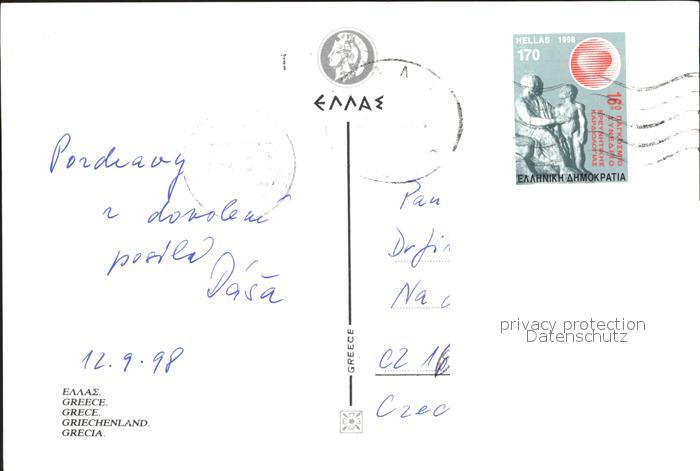 ΕΛΛΑΣ
Pozdravy
z dovolené
posílá
Dáša
12.9.98
ΕΛΛΑΣ.
GREECE.
GRECE.
GRIECHENLAND.
GRECIA.
GREECE
HELLAS 1998
170
16º ΠΑΓΚΟΣΜΙΟ
ΣΥΝΕΔΡΙΟ
ΕΡΕΥΝΗΤΙΚΗΣ
ΚΑΡΔΙΟΛΟΓΙΑΣ
ΕΛΛΗΝΙΚΗ ΔΗΜΟΚΡΑΤΙΑ
Pan
Na
CZ 16
Czec
privacy protection
Datenschutz